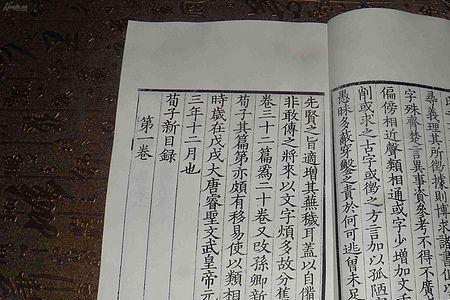 尋義理其所徵據則博求諸書但
字殊齊楚言異事資參考不得不廣
偏傍相近聲類相通或字少增加文
削或求之古字或徵之方言加以孤陋
愚昧多蔽穿鑿之責於何可逃曾未足
先賢之旨適增其蕪穢耳蓋以自備
非敢傳之將來以文字煩多故分舊
卷三十二篇爲二十卷又改孫卿新
荀子其篇第亦頗有移易使以類相
時歲在戊戌大唐睿聖文武皇帝元
三年十二月也
荀子新目錄
第一卷